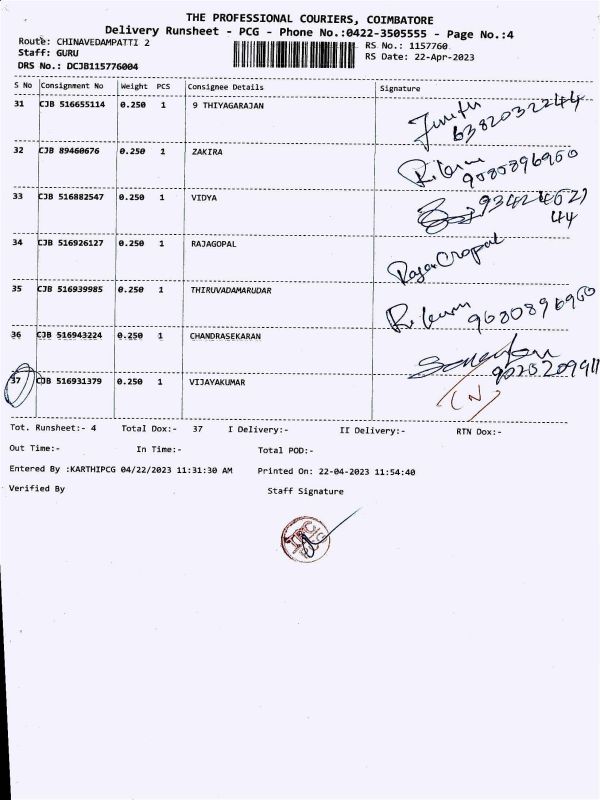 THE PROFESSIONAL COURIERS, COIMBATORE
Delivery Runsheet - PCG - Phone No.:0422-3505555 - Page No.:4
Route: CHINAVEDAMPATTI 2 RS No.: 1157760
Staff: GURU RS Date: 22-Apr-2023
DRS No.: DCJB115776004
S No Consignment No Weight PCS Consignee Details Signature
31 CJB 516655114 0.250 1 9 THIYAGARAJAN
6382032244
32 CJB 89460676 0.250 1 ZAKIRA
9080896960
33 CJB 516882547 0.250 1 VIDYA
44
34 CJB 516926127 0.250 1 RAJAGOPAL
RajaGopal
35 CJB 516939985 0.250 1 THIRUVADAMARUDAR
9080896960
36 CJB 516943224 0.250 1 CHANDRASEKARAN
37 CJB 516931379 0.250 1 VIJAYAKUMAR
(N)
Tot. Runsheet:- 4 Total Dox:- 37 I Delivery:- II Delivery:- RTN Dox:-
Out Time:- In Time:- Total POD:-
Entered By :KARTHIPCG 04/22/2023 11:31:30 AM Printed On: 22-04-2023 11:54:40
Verified By Staff Signature